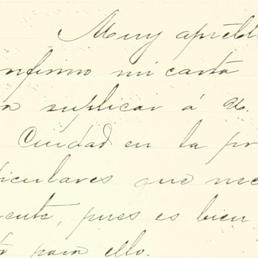 Muy apreciab
onfirmo mi carta
a suplicar á U.
Ciudad en la pr
iculares que nec
ente, pues es bien
para ello.